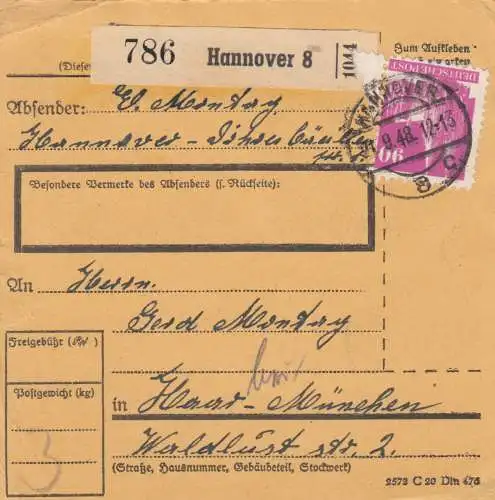 786 Hannover 8
1044
(Diese
Zum Aufkleben
DEUTSCHE POST
HANNOVER
11.9.48.12-13
8 c
90
Absender: E. Montag
Hannover-
Besondere Vermerke des Absenders (s. Rückseite):
An Herrn.
Gerd Montag
Freigebühr (RM)
Postgewicht (kg)
3
in Haar-München
Waldluststr. 2.
(Straße, Hausnummer, Gebäudeteil, Stockwerk)
2573 C 20 Din 476